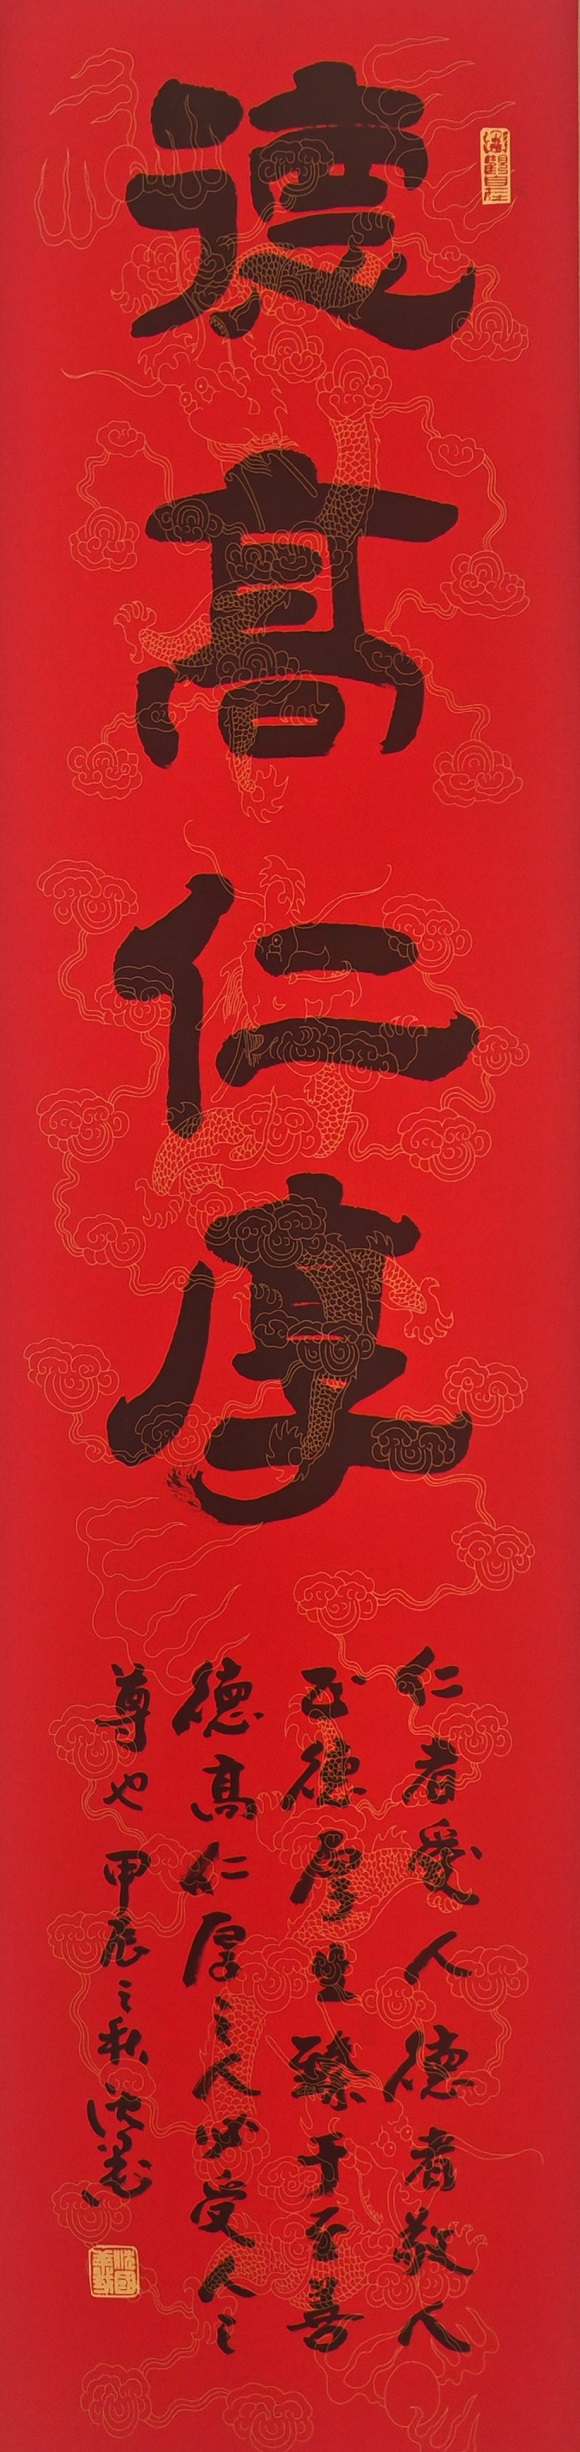 德高仁厚
仁者爱人德者敬人
正德厚生臻于至善
德高仁厚之人必受人之
尊也 甲辰之秋